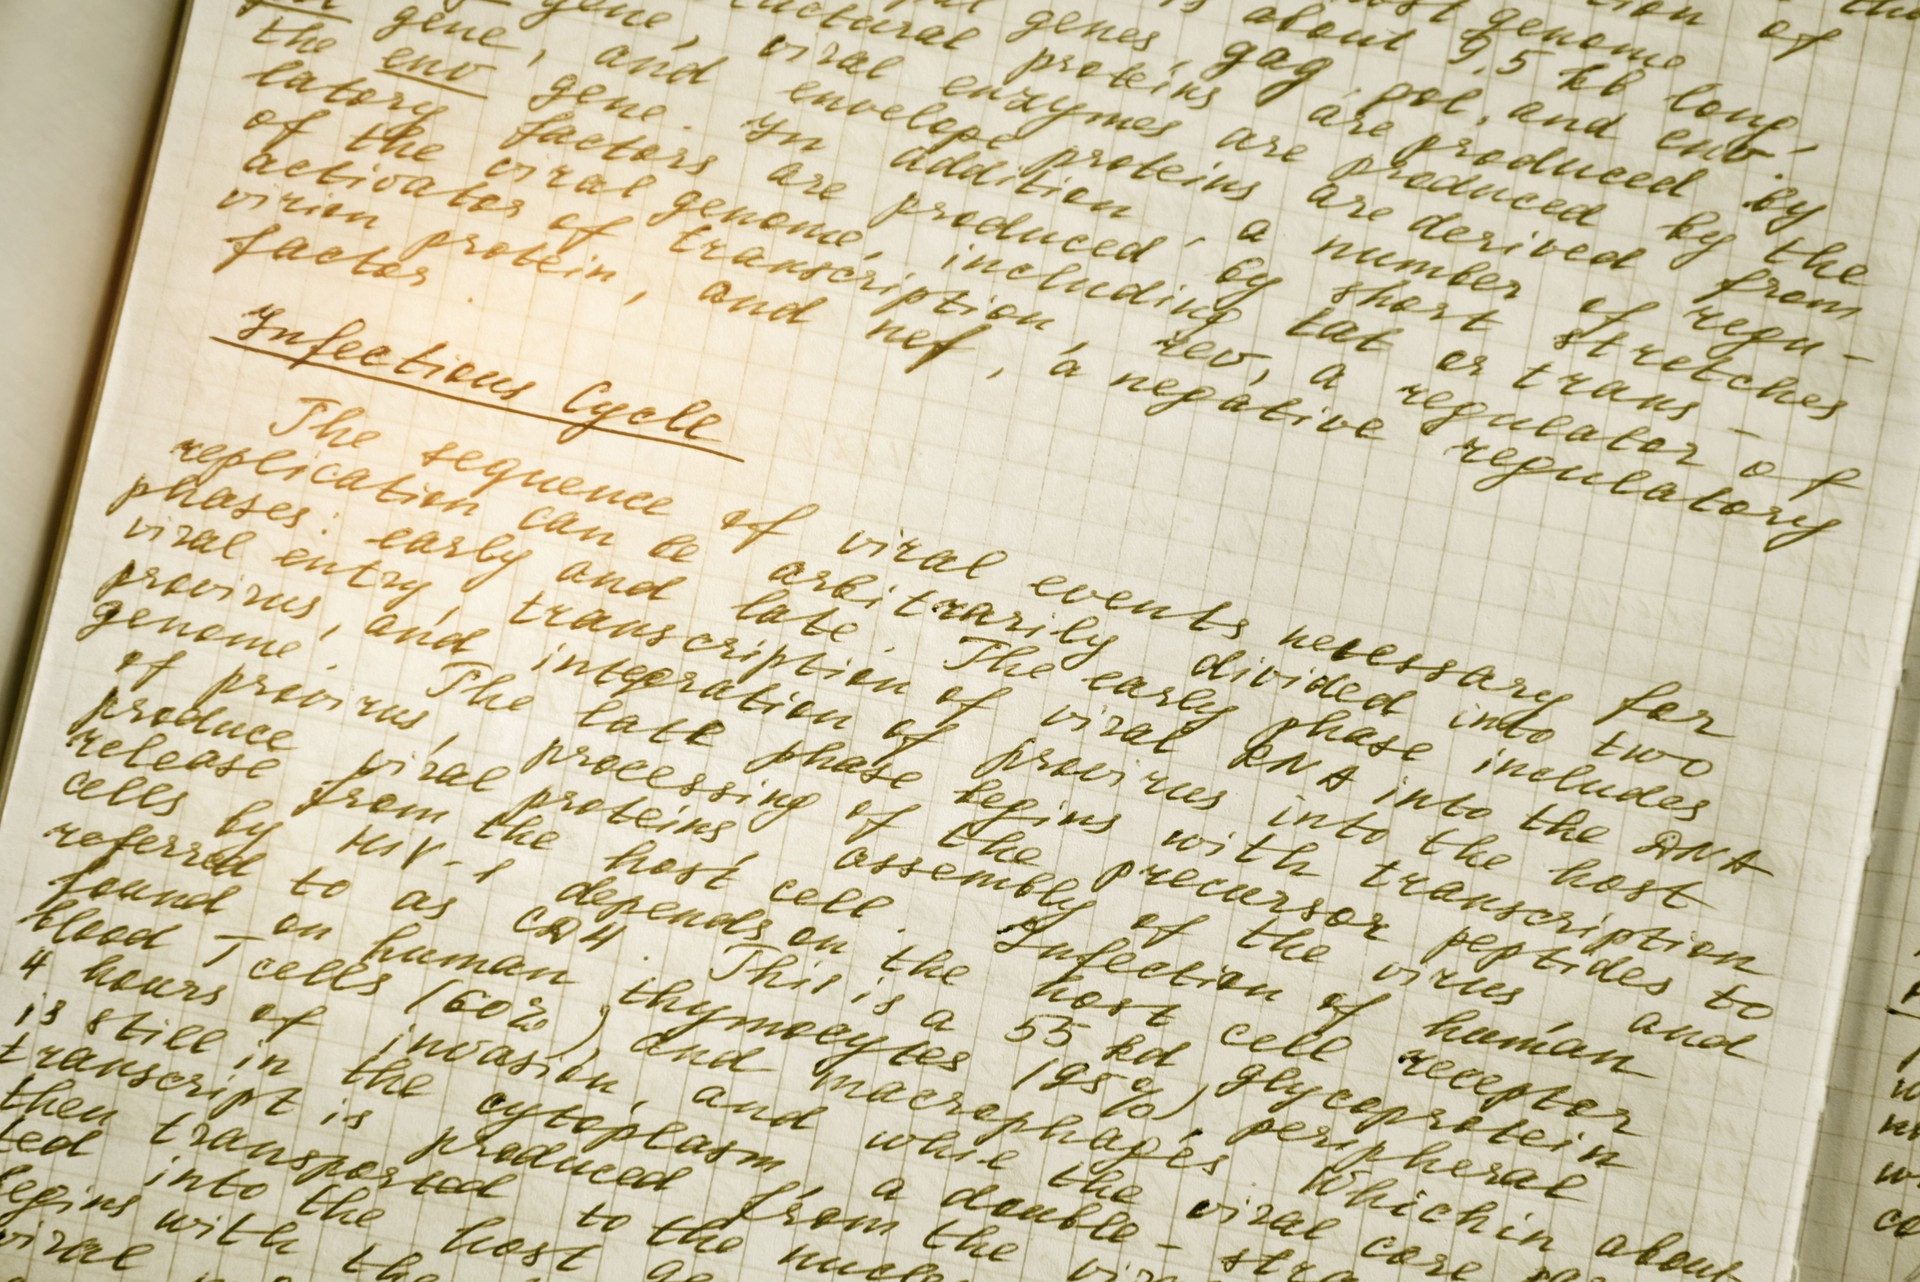 genome
is about 9,5 kb long,
genes, gag, pol, and env.
structural proteins are produced by
gene, viral enzymes are produced by the
gene, and envelope proteins are derived from
the env gene. In addition, a number of regu-
latory factors are produced by short stretches
of the viral genome, including tat or trans-
activator of transcription, rev, a regulator of
virion protein, and nef, a negative regulatory
factor.
Infectious Cycle
The sequence of viral events necessary for
replication can be arbitrarily divided into two
phases: early and late. The early phase includes
viral entry, transcription of viral RNA into the DNA
provirus, and integration of provirus into the host
genome. The late phase begins with transcription
of provirus, processing of the precursor peptides to
produce viral proteins, assembly of the virus and
release from the host cell. Infection of human
cells by HIV-1 depends on the host cell receptor
referred to as CD4. This is a 55 kd glycoprotein
found on human thymocytes (95%), peripheral
blood T cells (60%), and macrophages. Whichin about
4 hours of invasion, and while the viral core
is still in the cytoplasm, a double-
transcript is produced from the
then transported to the
ted into the host
begins with the
viral